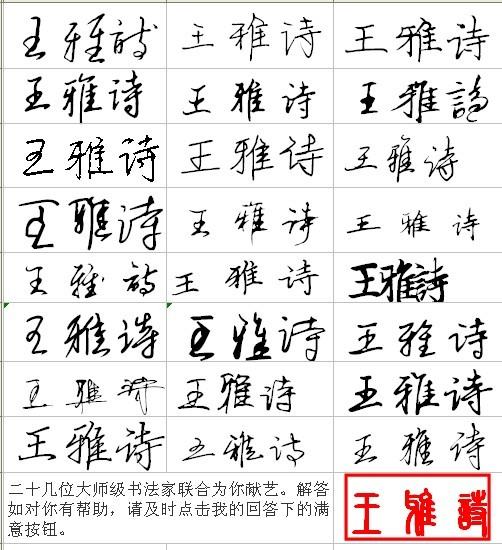 王雅诗 王雅诗 王雅诗
王雅诗 王雅诗 王雅詩
王雅诗 王雅诗 王雅诗
王雅诗 王雅诗 王雅诗
王雅诗 王雅诗 王雅詩
王雅诗 王雅诗 王雅诗
王雅诗 王雅诗 王雅诗
王雅诗 王雅诗 王雅诗
二十几位大师级书法家联合为你献艺。解答
如对你有帮助，请及时点击我的回答下的满
意按钮。
王雅詩